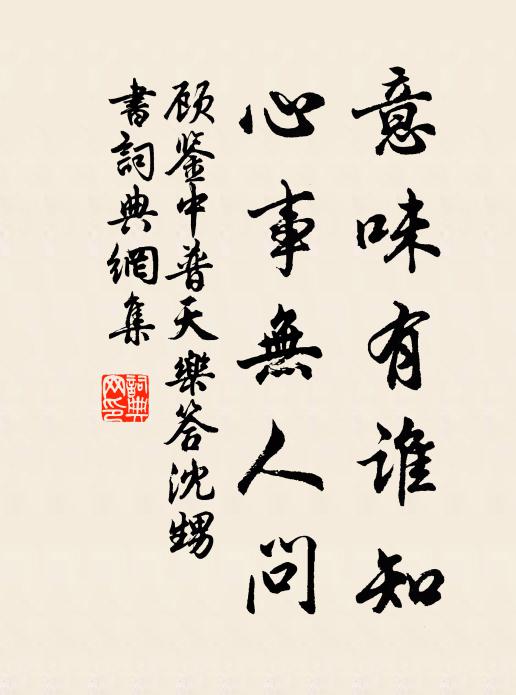 意味有谁知
心事無人問
顾鉴中普天樂答沈甥
書詞典網集
詞典网印